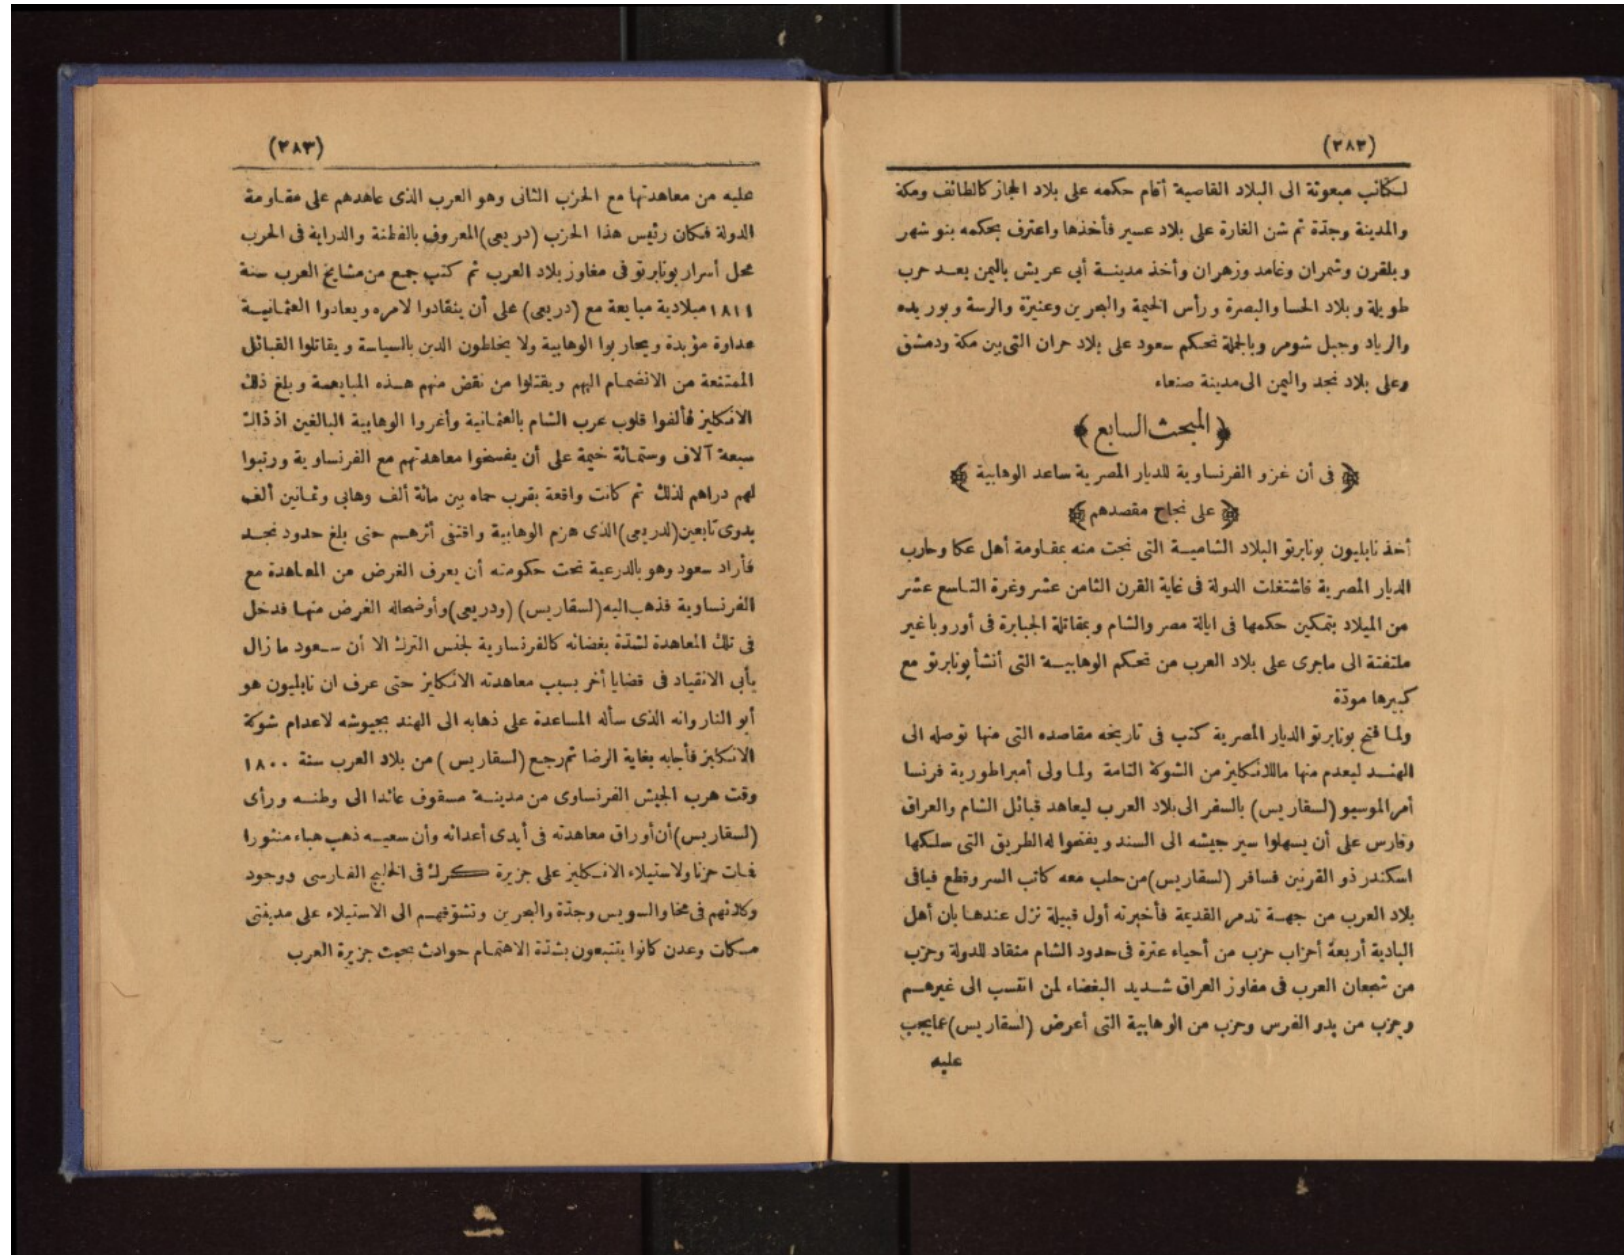 (٢٨٢)
لكتائب مبعوثة الى البلاد القاصية أقام حكمه على بلاد الحجاز كالطائف ومكة
والمدينة وجدّة ثم شن الغارة على بلاد عسير فأخذها واعترف بحكمه بنو شهر
وبلقرن وشمران وغامد وزهران وأخذ مدينة أبي عريش باليمن بعد حرب
طويلة وبلاد الحسا والبصرة ورأس الخيمة والبحرين وعنيزة والرسة وبوريده
والرياد وجبل شومر وبالجملة تحكم سعود على بلاد حران التى بين مكة ودمشق
وعلى بلاد نجد واليمن الى مدينة صنعاء
﴿المبحث السابع﴾
﴿فى أن غزو الفرنساوية للديار المصرية ساعد الوهابية﴾
﴿على نجاح مقصدهم﴾
أخذ نابليون بونابرتو البلاد الشامية التى نجت منه بمقاومة أهل عكا وحارب
الديار المصرية فاشتغلت الدولة فى غاية القرن الثامن عشر وغرة التاسع عشر
من الميلاد بتمكين حكمها فى ايالة مصر والشام وبمقاتلة الجبابرة فى أوروبا غير
ملتفتة الى ماجرى على بلاد العرب من تحكم الوهابية التى أنشأ بونابرتو مع
كبيرها مودّة
ولما فتح بونابرتو الديار المصرية كتب فى تاريخه مقاصده التى منها توصله الى
الهند ليعدم منها ماللانكليز من الشوكة التامة ولما ولى أمبراطورية فرنسا
أمر الموسيو (لسقاريس) بالسفر الى بلاد العرب ليعاهد قبائل الشام والعراق
وفارس على أن يسهلوا سير جيشه الى السند ويفتحوا له الطريق التى سلكها
اسكندر ذو القرنين فسافر (لسقاريس) من حلب معه كاتب السر وقطع فيافى
بلاد العرب من جهة تدمر القديمة فأخبرته أول قبيلة نزل عندها بان أهل
البادية أربعة أحزاب حزب من أحياء عنزة فى حدود الشام منقاد للدولة وحزب
من شجعان العرب فى مفاوز العراق شديد البغضاء لمن انتسب الى غيرهم
وحزب من بدو الفرس وحزب من الوهابية التى أعرض (لسقاريس) عمايجب
عليه
(٢٨٣)
عليه من معاهدتها مع الحزب الثانى وهو العرب الذى عاهدهم على مقاومة
الدولة فكان رئيس هذا الحزب (دريعى) المعروف بالفطنة والدراية فى الحرب
محل أسرار بونابرتو فى مفاوز بلاد العرب ثم كتب جمع من مشايخ العرب سنة
١٨١١ ميلادية مبايعة مع (دريعى) على أن ينقادوا لامره ويعادوا العثمانية
عداوة مؤبدة ويحاربوا الوهابية ولا يخلطون الدين بالسياسة ويقاتلوا القبائل
الممتنعة من الانضمام اليهم ويقتلوا من نقض منهم هذه المبايعة وبلغ ذلك
الانكليز فألفوا قلوب عرب الشام بالعثمانية وأغروا الوهابية البالغين اذ ذاك
سبعة آلاف وستمائة خيمة على أن يفسخوا معاهدتهم مع الفرنساوية ورتبوا
لهم دراهم لذلك ثم كانت واقعة بقرب حماه بين مائة ألف وهابي وثمانين ألف
بدوى تابعين (لدريعى) الذى هزم الوهابية واقتفى أثرهم حتى بلغ حدود نجد
فأراد سعود وهو بالدرعية تحت حكومته أن يعرف الغرض من المعاهدة مع
الفرنساوية فذهب اليه (لسقاريس) (ودريعى) وأوضحاله الغرض منها فدخل
فى تلك المعاهدة لشدّة بغضائه كالفرنساوية لجنس الترك الا أن سعود ما زال
يأبى الانقياد فى قضايا أخر بسبب معاهدته الانكليز حتى عرف ان نابليون هو
أبو النار وانه الذى سأله المساعدة على ذهابه الى الهند بجيوشه لاعدام شوكة
الانكليز فأجابه بغاية الرضا ثم رجع (لسقاريس) من بلاد العرب سنة ١٨٠٠
وقت هرب الجيش الفرنساوى من مدينة مسقوف عائدا الى وطنه ورأى
(لسقاريس) أن أوراق معاهدته فى أيدى أعدائه وأن سعيه ذهب هباء منثورا
فمات حزنا ولاستيلاء الانكليز على جزيرة كرك فى الخليج الفارسى ووجود
وكلائهم فى مخا والسويس وجدّة والبحرين وتشوّفهم الى الاستيلاء على مدينتى
مسكات وعدن كانوا يتتبعون بشدّة الاهتمام حوادث بحيث جزيرة العرب